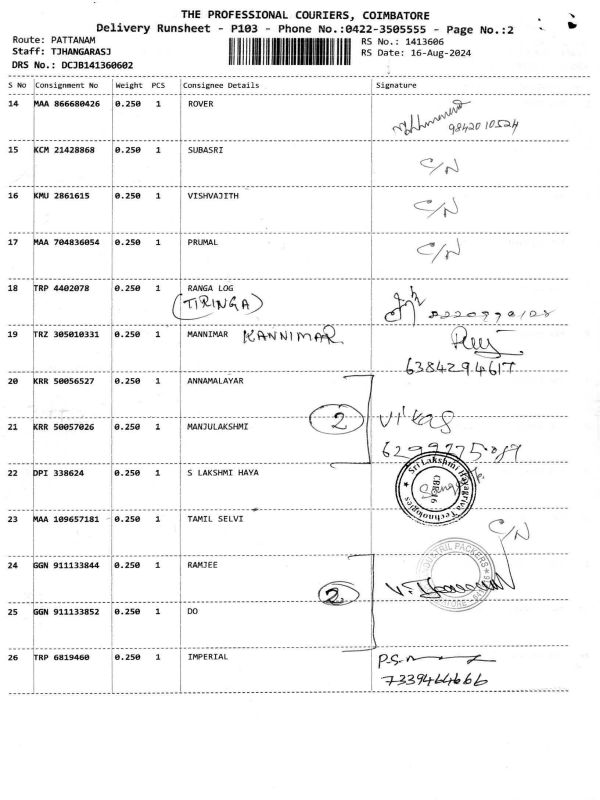 THE PROFESSIONAL COURIERS, COIMBATORE
Delivery Runsheet - P103 - Phone No.:0422-3505555 - Page No.:2
Route: PATTANAM
Staff: TJHANGARASJ
DRS No.: DCJB141360602
RS No.: 1413606
RS Date: 16-Aug-2024
S No Consignment No Weight PCS Consignee Details Signature
14 MAA 866680426 0.250 1 ROVER
9842010524
15 KCM 21428868 0.250 1 SUBASRI C/N
16 KMU 2861615 0.250 1 VISHVAJITH C/N
17 MAA 704836054 0.250 1 PRUMAL C/N
18 TRP 4402078 0.250 1 RANGA LOG
(TIRINGA)
19 TRZ 305010331 0.250 1 MANNIMAR KANNIMAR
6384294617
20 KRR 50056527 0.250 1 ANNAMALAYAR
2 Vikas
21 KRR 50057026 0.250 1 MANJULAKSHMI
22 DPI 338624 0.250 1 S LAKSHMI HAYA
Sri Lakshmi Hayagriva Technologies
CBE-16
23 MAA 109657181 0.250 1 TAMIL SELVI C/N
24 GGN 911133844 0.250 1 RAMJEE
2
25 GGN 911133852 0.250 1 DO
26 TRP 6819460 0.250 1 IMPERIAL
7339464666